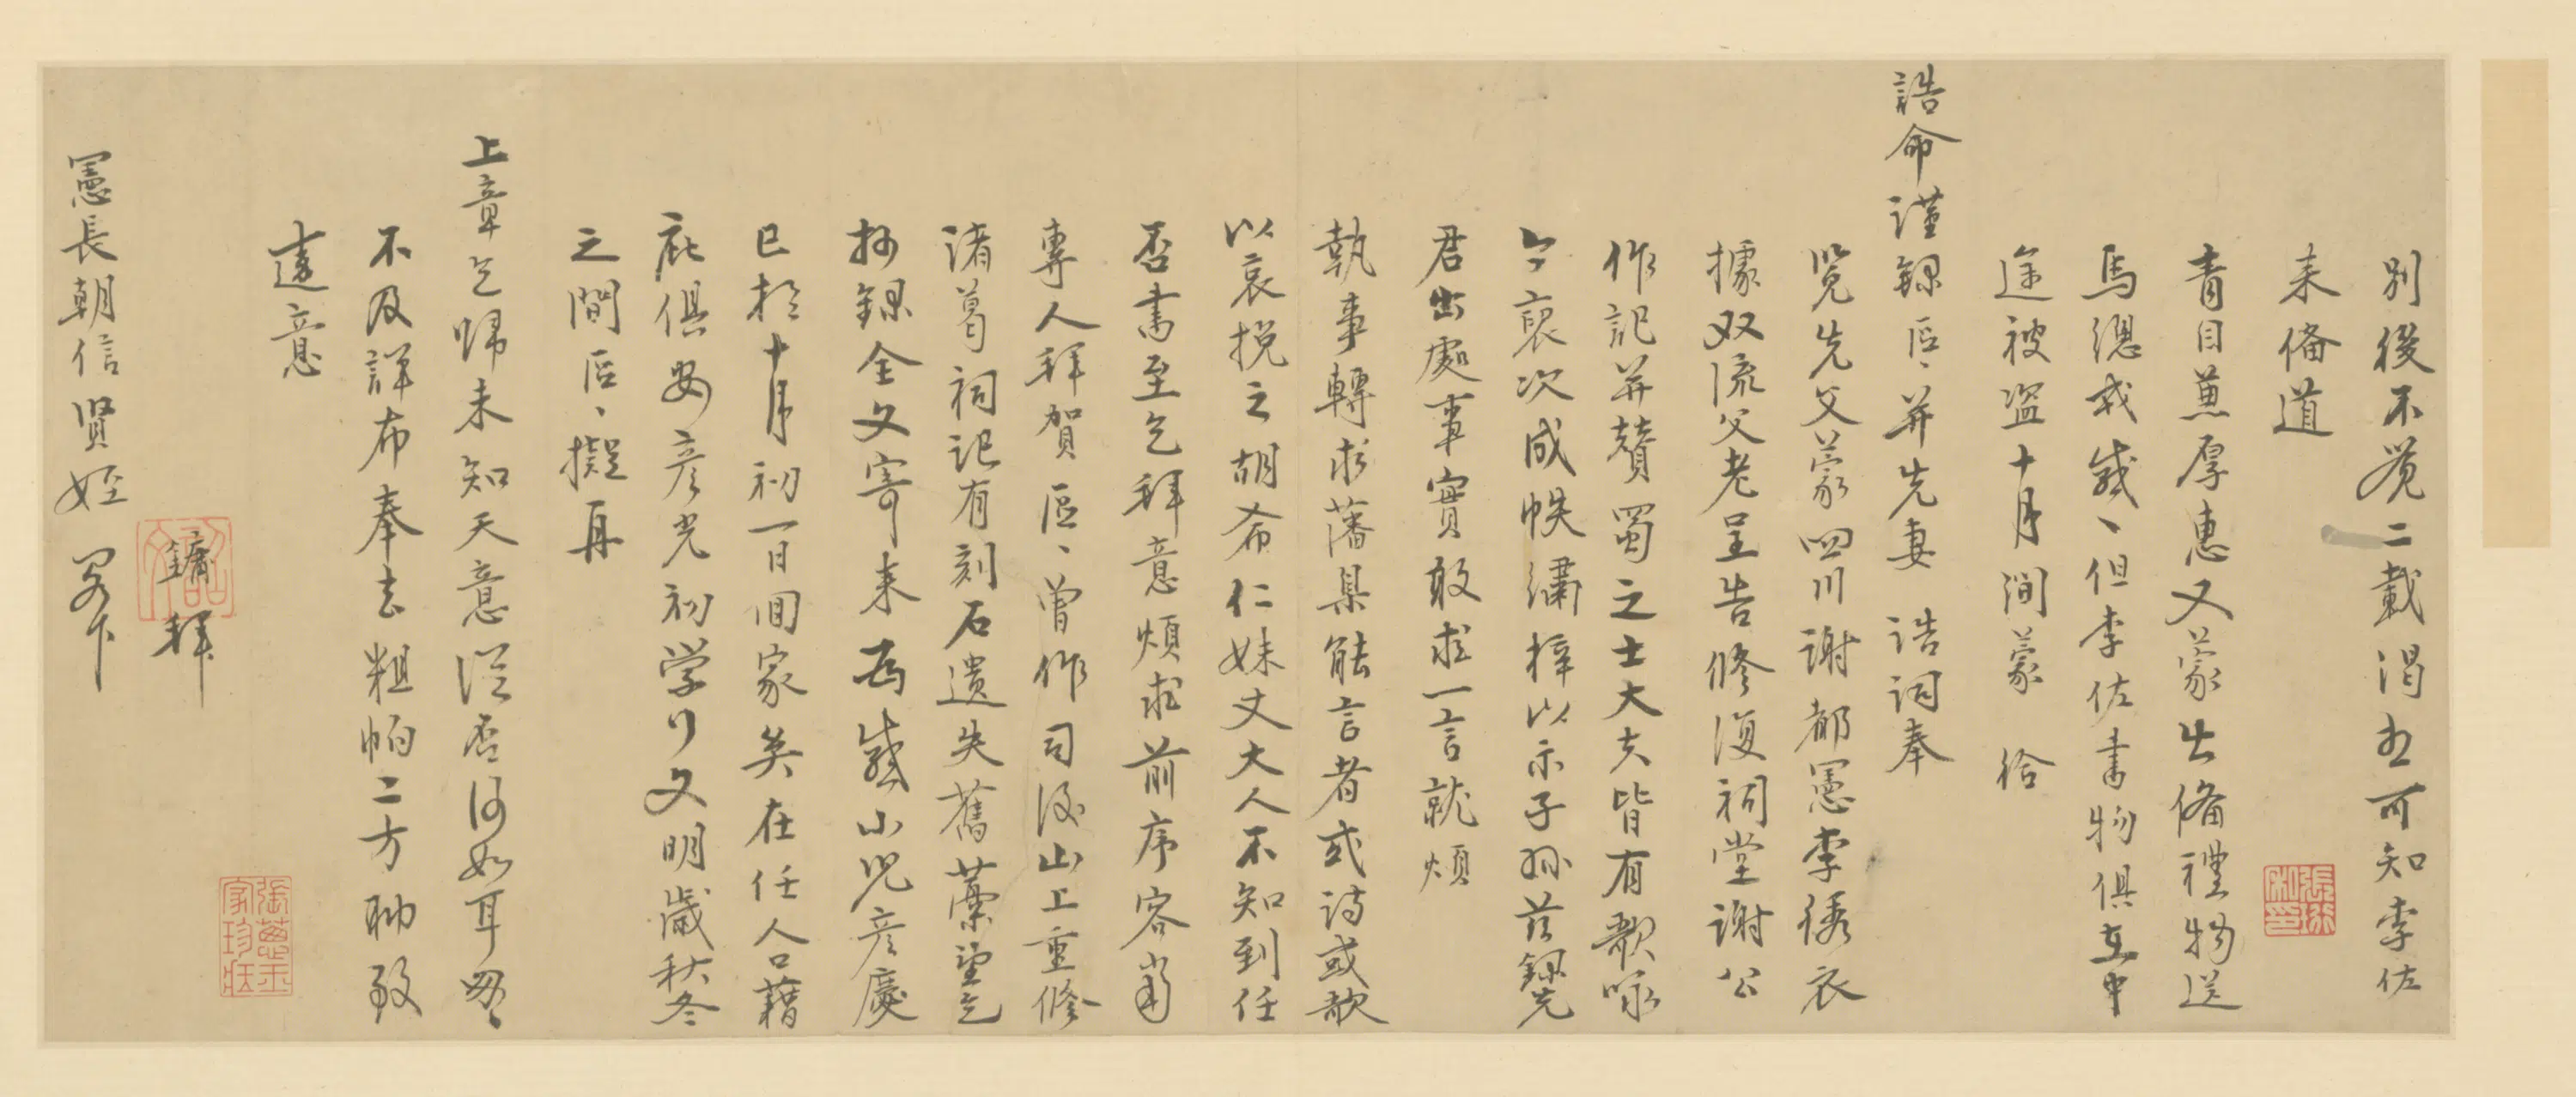 別後不覺二載渴想可知李佐
来偹道
青目兼厚惠又蒙出偹禮物送
馬總戎感〻但李佐書物俱在中
途被盜十月間蒙 給
誥命謹錄區〻并先妻 誥詞奉
覽先父蒙四川謝都憲李綉衣
據双流父老呈告修復祠堂謝公
作記并贊蜀之士大夫皆有歌咏
今裒次成帙繡梓以示子孫茲錄先
君出處事實敢求一言就煩
執事轉求藩臬能言者或詩或歌
以哀挽之胡希仁妹丈大人不知到任
否書至乞拜意煩求前序容當
專人拜賀區〻曾作司後山上重修
諸葛祠記有刻石遺失舊藁望乞
抄錄全文寄来為感小兒彥慶
已於十月初一日回家矣在任人口藉
庇俱安彥光初学行文明歲秋冬
之間區〻擬再
上章乞歸未知天意從否何如耳
不及詳布奉去粗帕二方聊致
遠意
鏞拜
憲長朝信賢姪 閣下